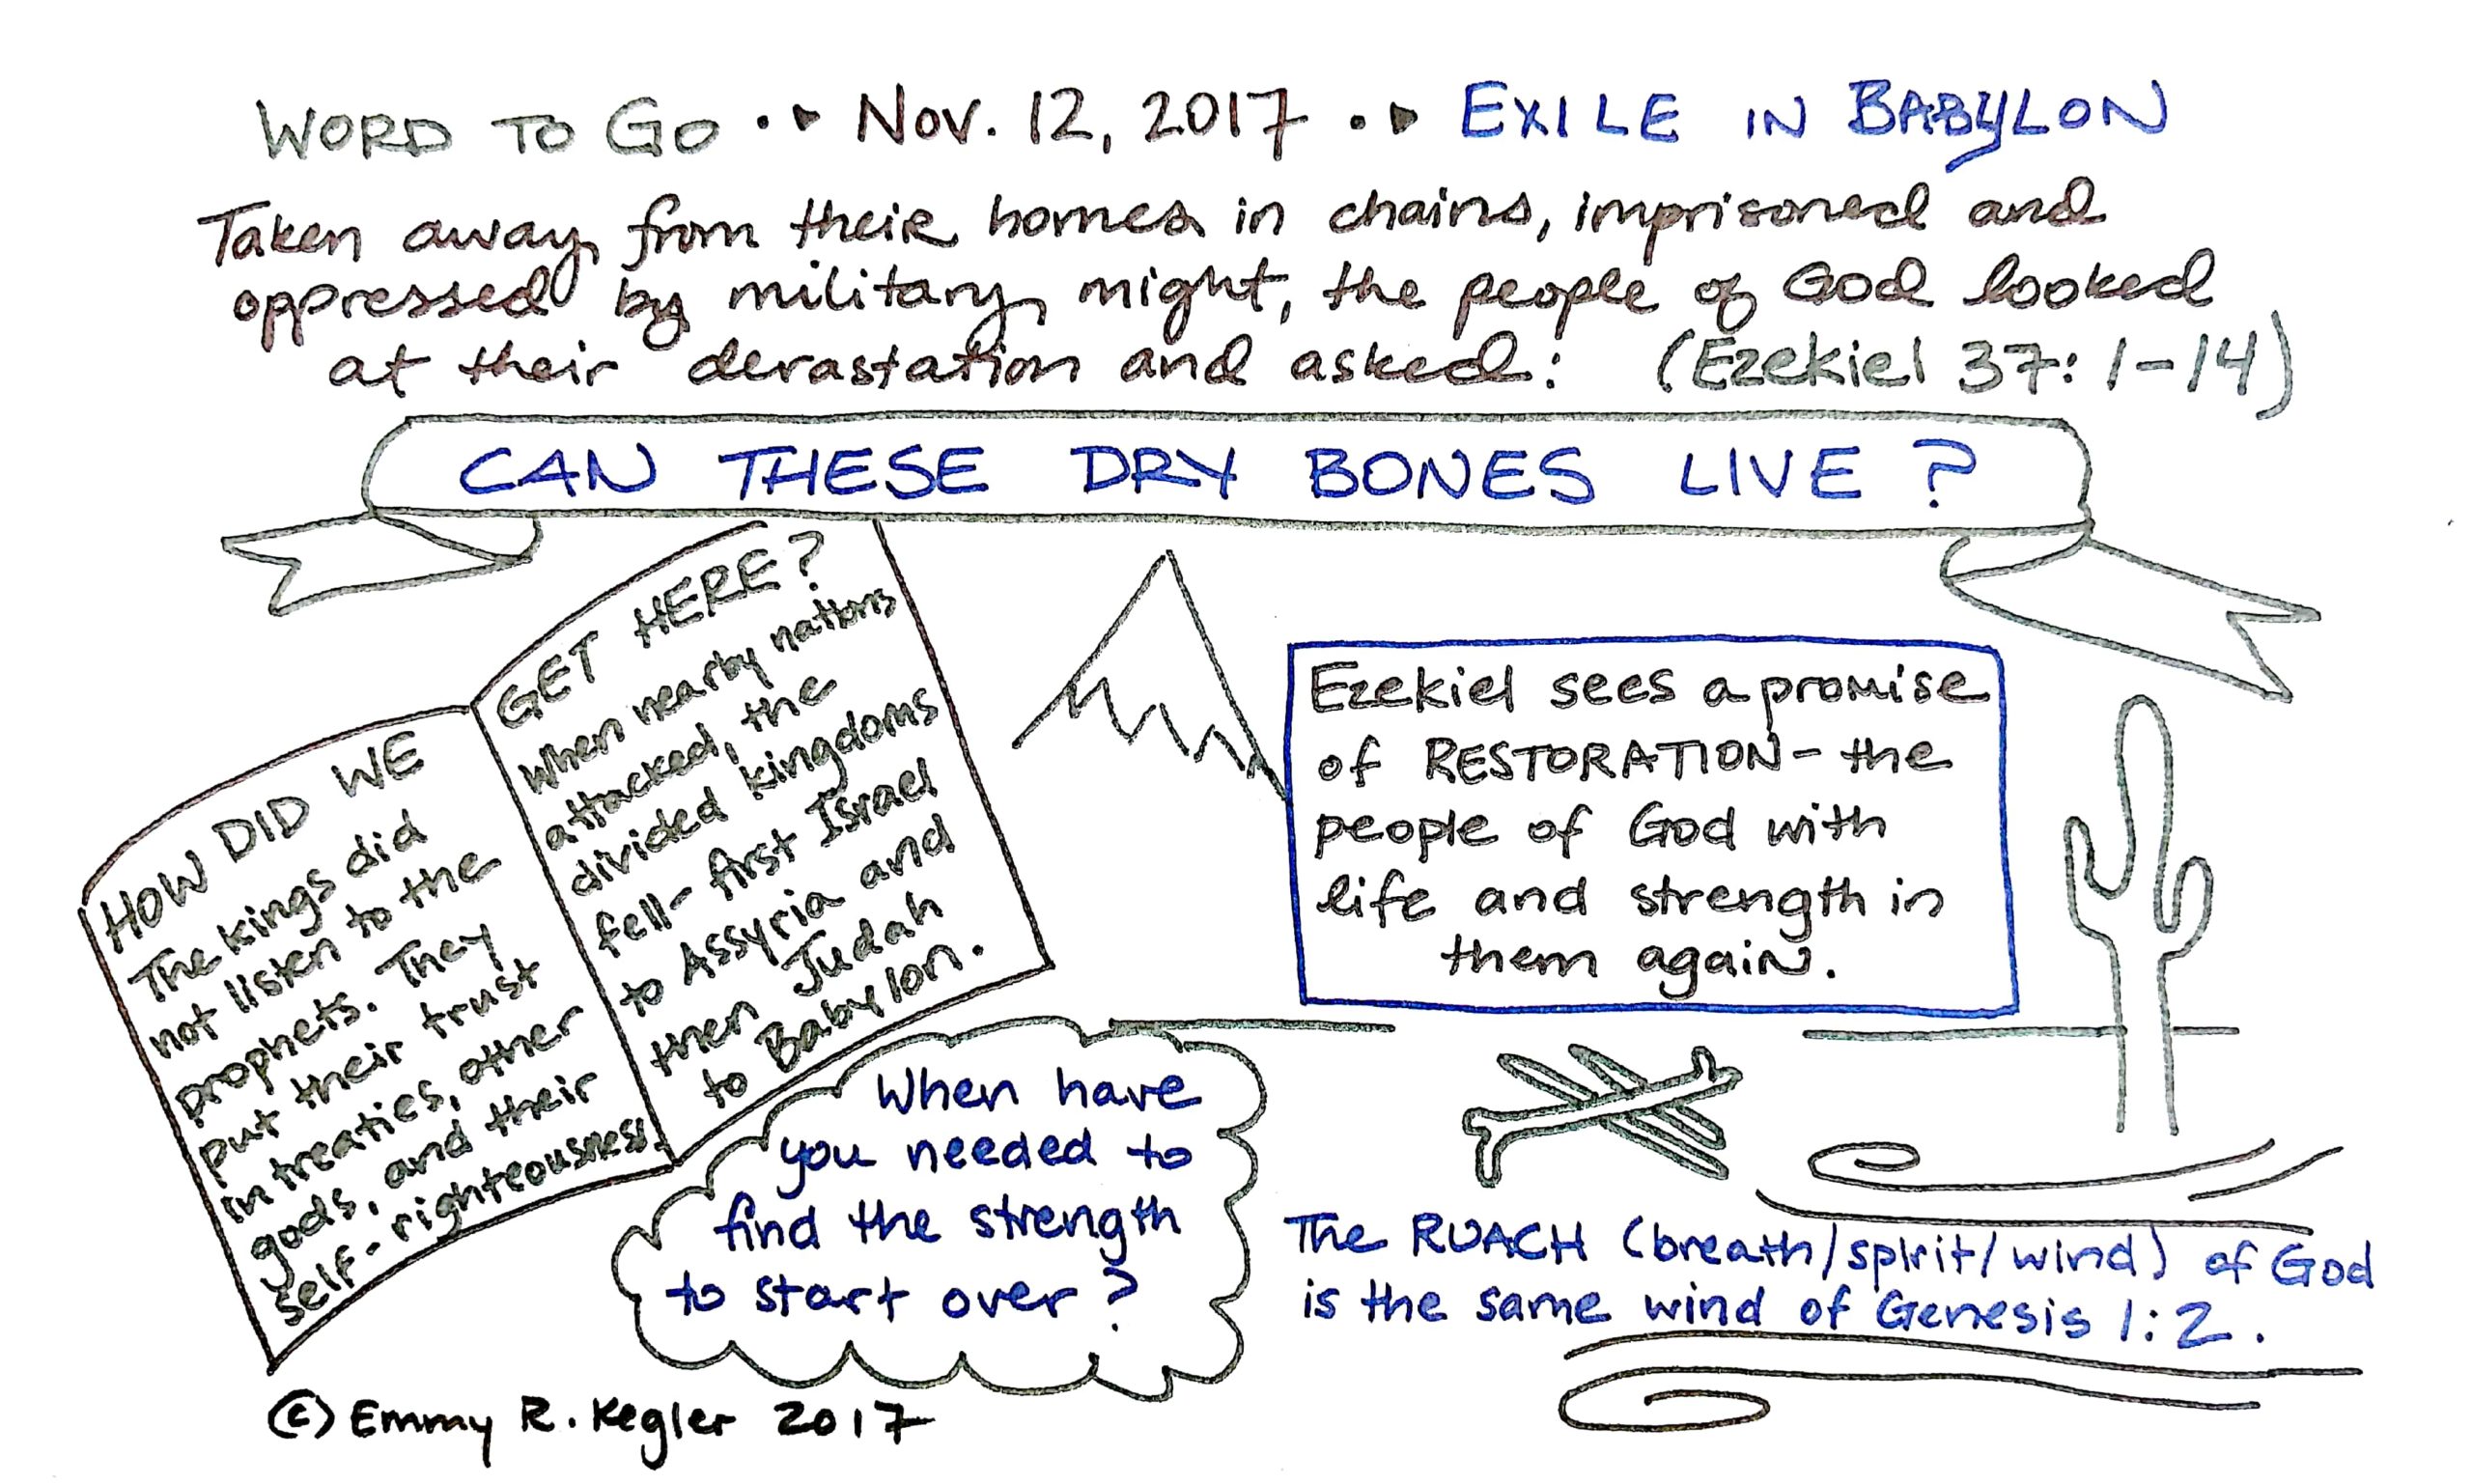 WORD TO GO • ▸ Nov. 12, 2017 • ▸ EXILE IN BABYLON
Taken away from their homes in chains, imprisoned and
oppressed by military might, the people of God looked
at their devastation and asked: (Ezekiel 37:1-14)
CAN THESE DRY BONES LIVE?
HOW DID WE
The kings did
not listen to the
prophets. They
put their trust
in treaties, other
gods, and their
self-righteousness.
GET HERE?
When nearby nations
attacked, the
divided kingdoms
fell- first Israel
to Assyria and
then Judah
to Babylon.
Ezekiel sees a promise
of RESTORATION- the
people of God with
life and strength in
them again.
When have
you needed to
find the strength
to start over?
The RUACH (breath/spirit/wind) of God
is the same wind of Genesis 1:2.
© Emmy R. Kegler 2017